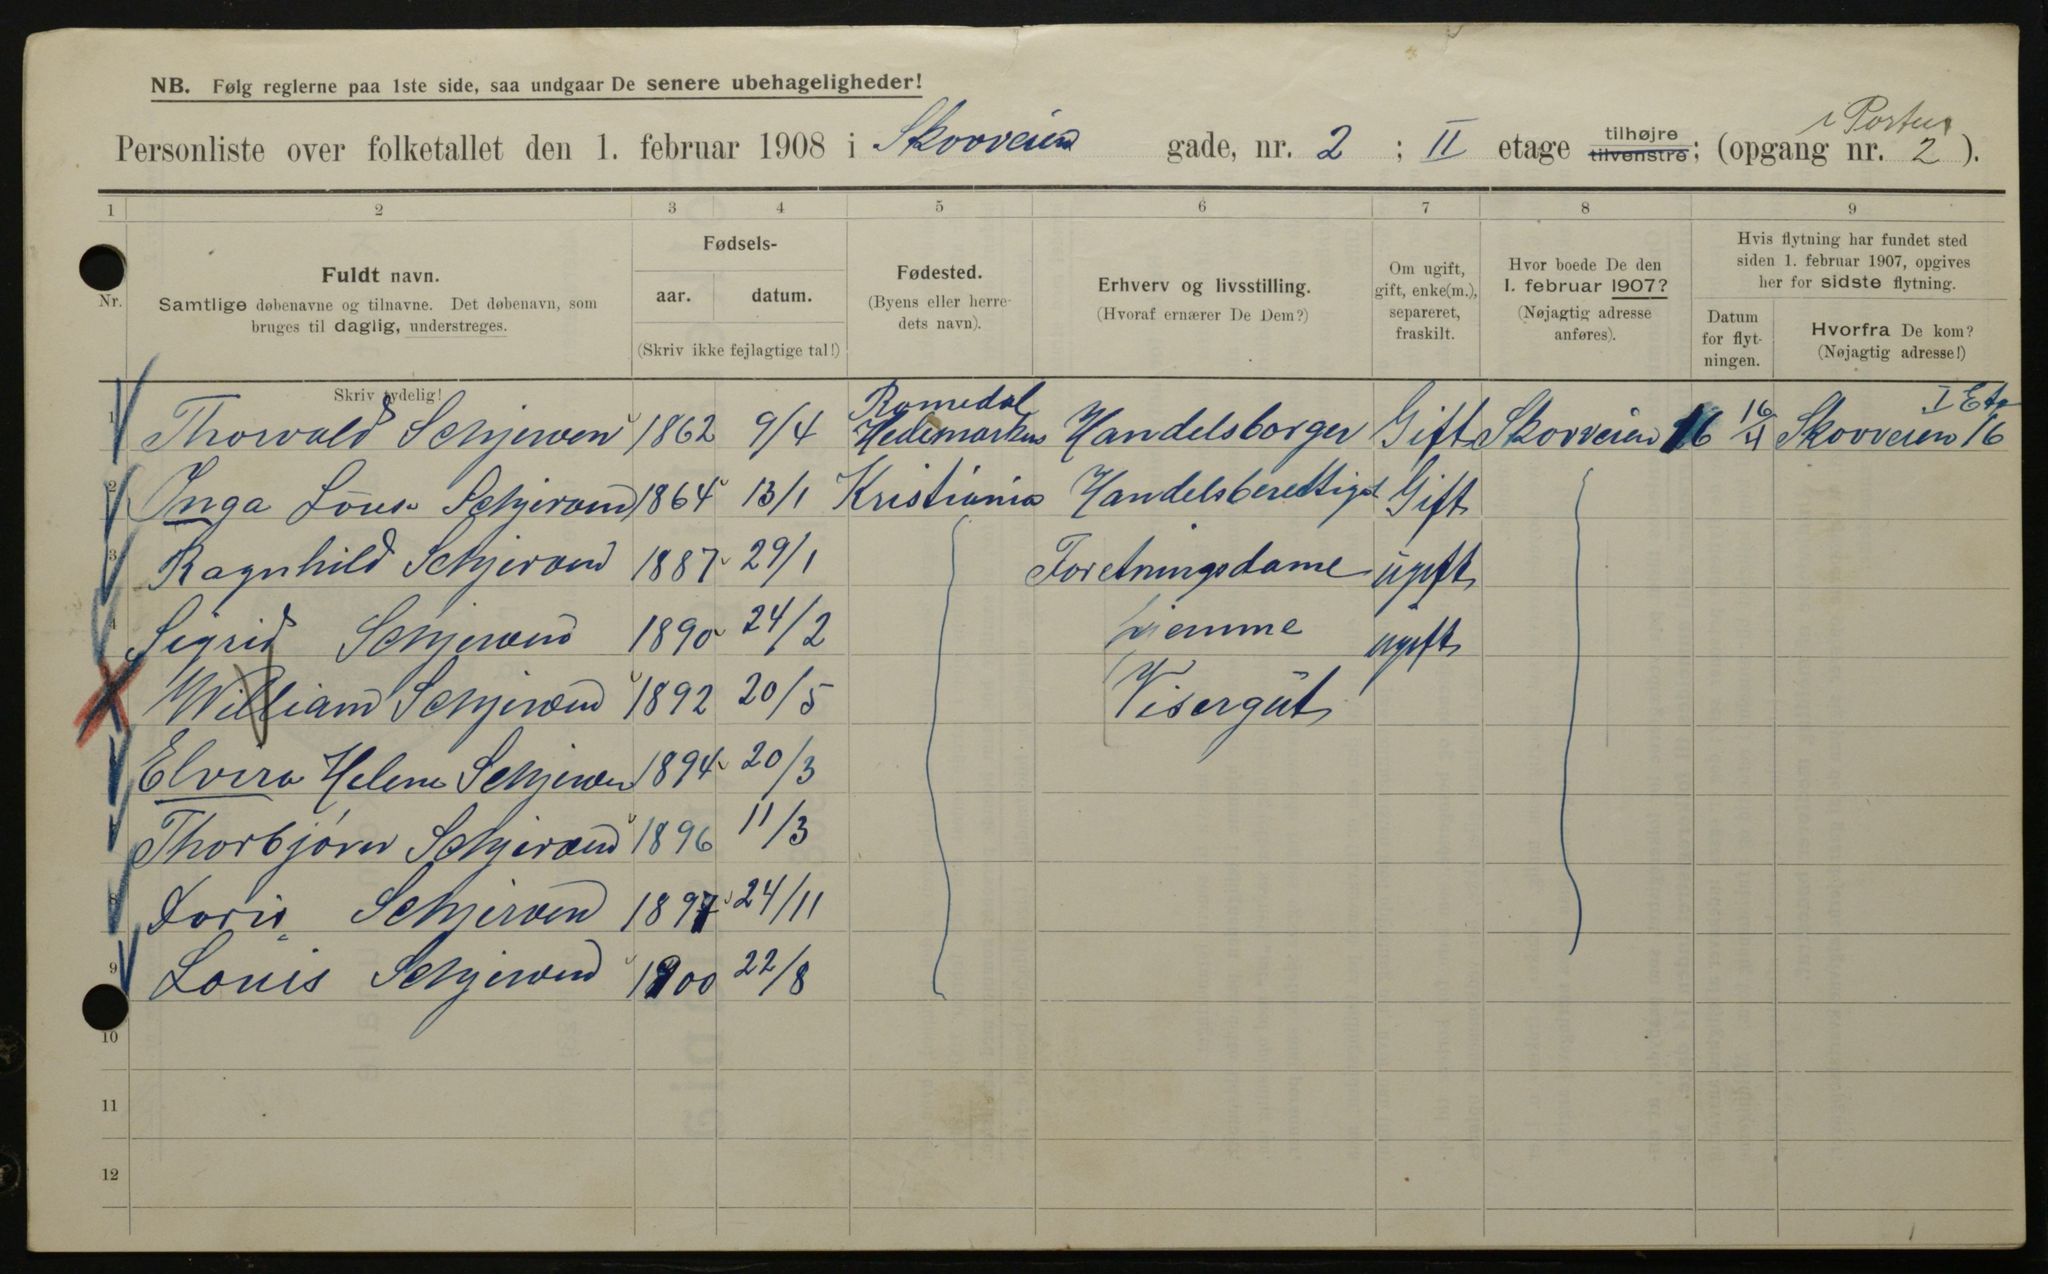 NB. Følg reglerne paa 1ste side, saa undgaar De senere ubehageligheder!
i Porten
Personliste over folketallet den 1. februar 1908 i Skovveien gade, nr. 2 ; II etage tilhøjre tilvenstre; (opgang nr. 2 ).
1 2 3 4 5 6 7 8 9
Nr.
Fuldt navn.
Samtlige døbenavne og tilnavne. Det døbenavn, som
bruges til daglig, understreges.
Fødsels-
aar. datum.
(Skriv ikke fejlagtige tal!)
Fødested.
(Byens eller herre-
dets navn).
Erhverv og livsstilling.
(Hvoraf ernærer De Dem?)
Om ugift,
gift, enke(m.),
separeret,
fraskilt.
Hvor boede De den
1. februar 1907?
(Nøjagtig adresse
anføres).
Hvis flytning har fundet sted
siden 1. februar 1907, opgives
her for sidste flytning.
Datum
for flyt-
ningen.
Hvorfra De kom?
(Nøjagtig adresse!)
Skriv tydelig!
Romedal I Etg
1 Thorvald Schjerven 1862 9/4 Hedemarken Handelsborger Gift Skovveien 16 16/4 Skovveien 16
2 Inga Louise Schjerven 1864 13/1 Kristiania Handelsberettiget Gift
3 Ragnhild Schjerven 1887 29/1 Foretningsdame ugift
4 Sigrid Schjerven 1890 24/2 hjemme ugift
William Schjerven 1892 20/5 Visergut
Elvira Helene Schjerven 1894 20/3
Thorbjørn Schjerven 1896 11/3
8 Doris Schjerven 1897 24/11
9 Louis Schjerven 1900 22/8
10
11
12